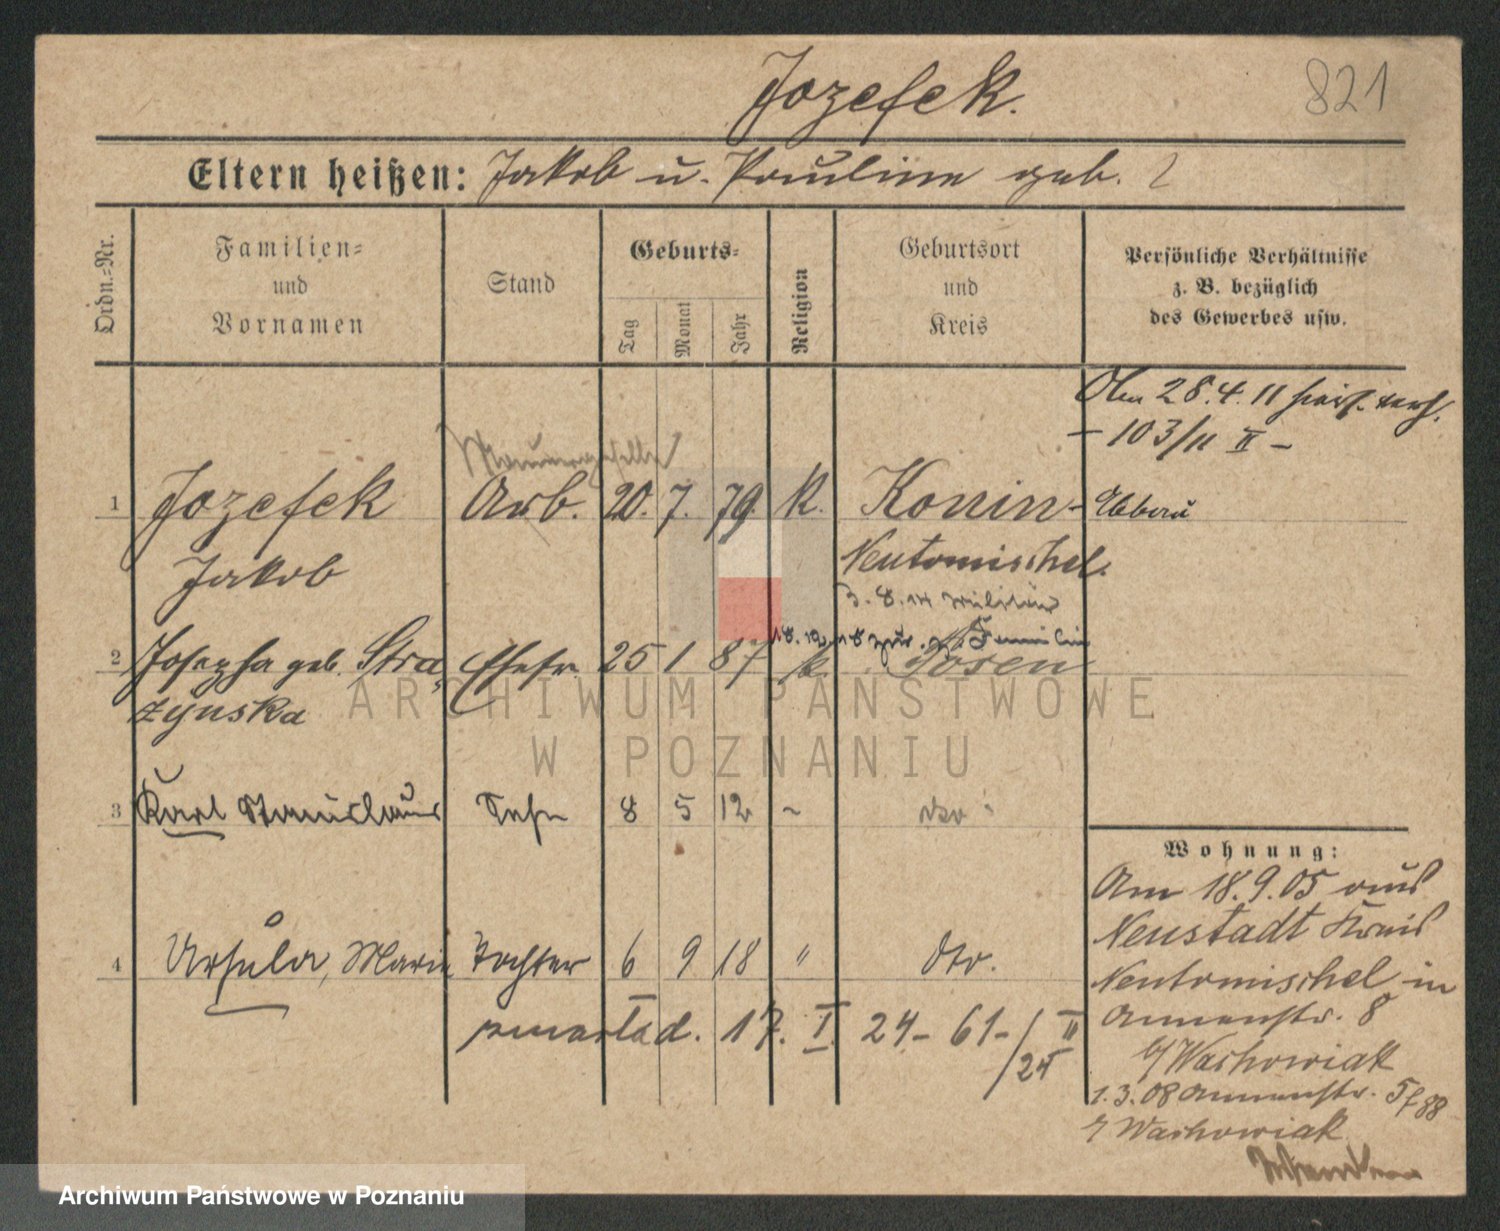 Jozefek.
821
Eltern heißen: Jakob u. Pauline geb. ?
Ordn.=Nr.
Familien=
und
Vornamen
Stand
Geburts=
Tag
Monat
Jahr
Religion
Geburtsort
und
Kreis
Persönliche Verhältnisse
z. B. bezüglich
des Gewerbes usw.
Am 28.4.11
– 103/11 II –
Maurergeselle
1 Jozefek Arb. 20. 7. 79. k. Konin-
Jakob Neutomischel.
3.8.14 Militär
18.12.18 zur. z. Familie
2 Josepha geb. Stra Ehefr. 25 1 87 k. Posen
zynska
3 Karl Stanislaus Sohn 8 5 12 ~ dto
4 Ursula, Marie Tochter 6 9 18 " dto.
zmarła d. 17. I. 24 – 61 –/II
24
Wohnung:
Am 18.9.05 aus
Neustadt Kreis
Neutomischel in
Annenstr. 8
b/ Wachowiak
1.3.08 Annenstr. 5 f 88
b/ Wachowiak
ARCHIWUM PAŃSTWOWE
W POZNANIU
Archiwum Państwowe w Poznaniu